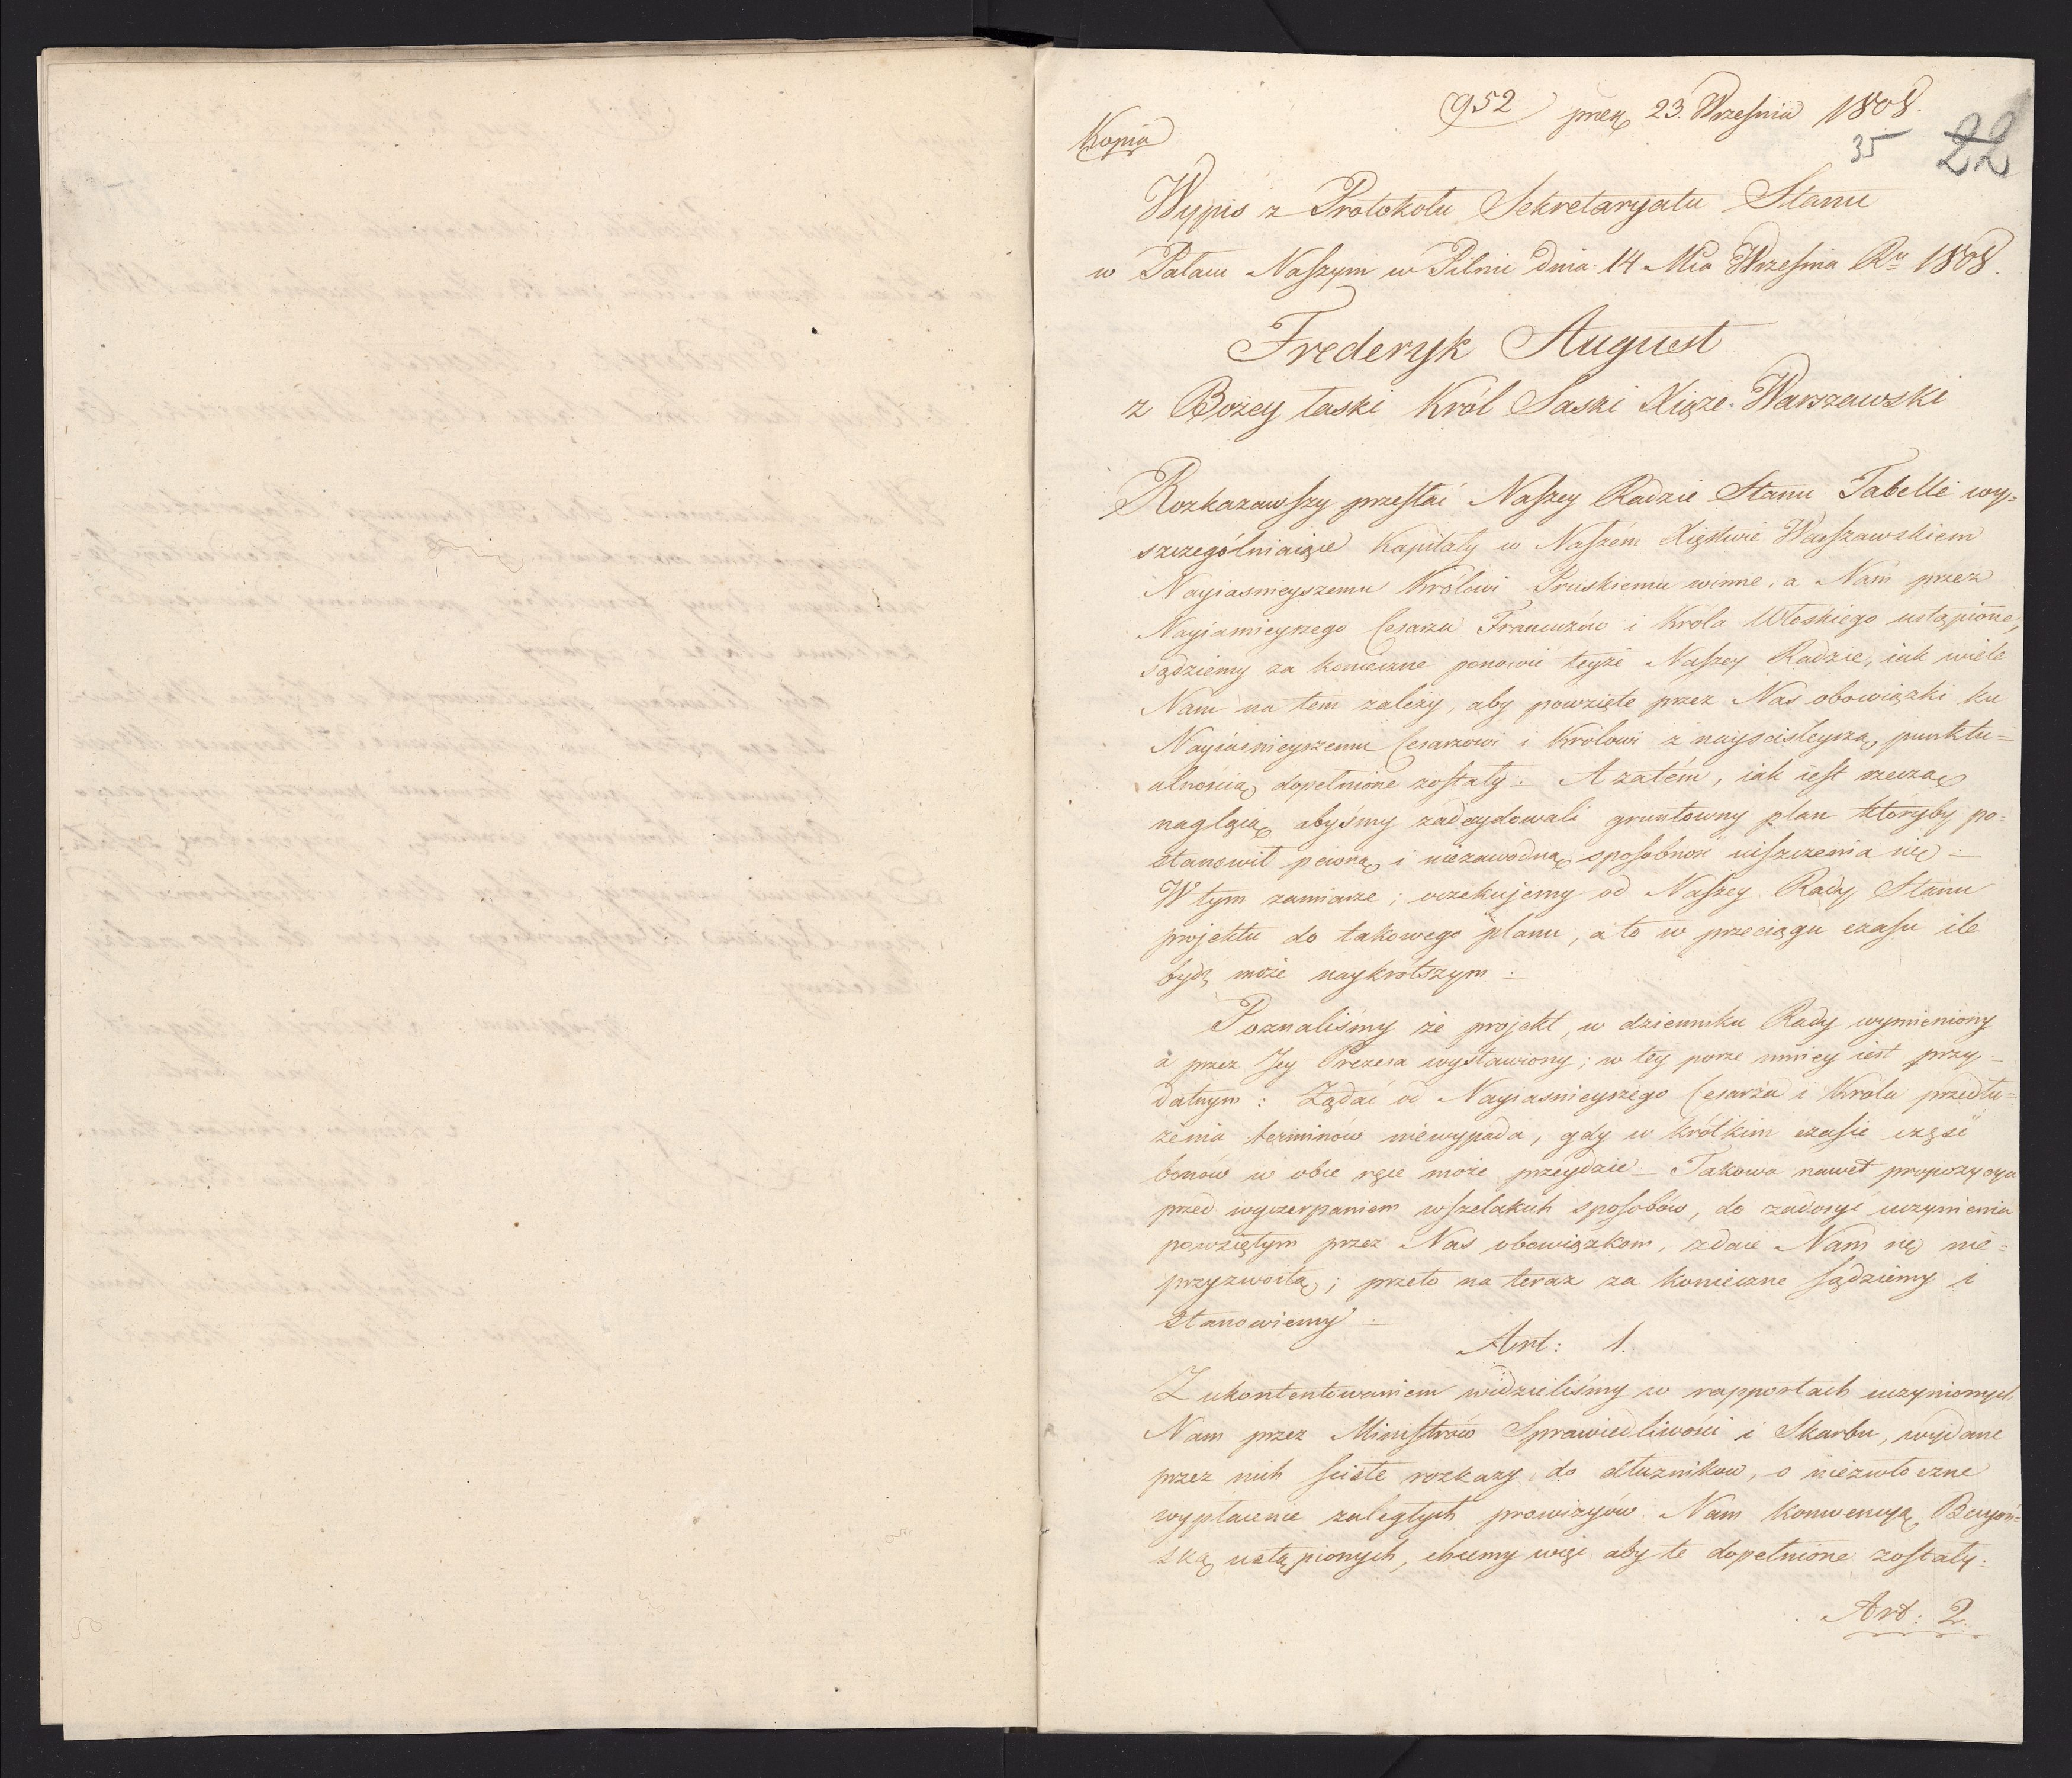 952 prez. 23. Wrzesnia 1808.
35 22
Kopia
Wypis z Protokołu Sekretaryatu Stanu
w Pałacu Naszym w Pilnic dnia 14 Mca Wrzesnia Ru 1808.
Frederyk August
z Bożey łaski Król Saski Xiąże Warszawski
Rozkazawszy przesłać Naszey Radzie Stanu Tabelle wy=
szczególniaiące Kapitały w Naszém Xięstwie Warszawskiem
Nayiasnieyszemu Królowi Pruskiemu winne, a Nam przez
Nayiasnieyszego Cesarza Francuzów i Króla Włoskiego ustąpione,
sądziemy za konieczne ponowić teyże Naszey Radzie, iak wiele
Nam na tem zależy, aby powzięte przez Nas obowiązki ku
Nayiasnieyszemu Cesarzowi i Krolowi z nayscisleyszą punktu=
alnością dopełnione zostały. A zatém, iak iest rzeczą
naglącą abyśmy zadecydowali gruntowny plan któryby po=
stanowił pewną i niezawodną sposobnosc uiszczenia się _
W tym zamiarze, oczekujemy od Naszey Rady Stanu
projektu do takowego planu, a to w przeciągu czasu ile
bydz może naykrótszym _
Poznaliśmy że projekt, w dzienniku Rady wymieniony
a przez Jey Prezesa wystawiony; w tey porze mniey iest przy=
datnym: Żądać od Nayiasnieyszego Cesarza i Króla przedłu=
żenia terminów niewypada, gdy w krótkim czasie część
bonów w obce ręce może przeydzie _ Takowa nawet propozycya
przed wyczerpaniem wszelakich sposobów, do zadosyć uczynienia
powziętym przez Nas obowiązkom, zdaie Nam się nie=
przyzwoitą; przeto na teraz za konieczne sądziemy i
stanowiemy _
Art: 1.
Z ukontentowaniem widzieliśmy w rapportach uczynionych
Nam przez Ministrów Sprawiedliwości i Skarbu, wydane
przez nich scisłe rozkazy do dłuznikow, o niezwłoczne
wypłacenie zaległych prowizyów Nam konwencyą Bayoń=
ską ustąpionych, chcemy więc aby te dopełnione zostały.
Art: 2.